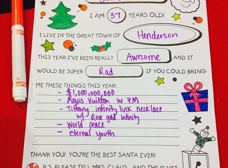 I AM 37 YEARS OLD!
I LIVE IN THE GREAT TOWN OF Henderson
THIS YEAR I'VE BEEN REALLY Awesome AND IT
WOULD BE SUPER Rad IF YOU COULD BRING
ME THESE THINGS THIS YEAR:
- $1,000,000,000
- Louis Vuitton W PM
- Tiffany infinity link necklace
w/ Rose gold infinity
- World peace
- eternal youth
THANK YOU! YOU'RE THE BEST SANTA EVER!
P.S. PLEASE TELL MRS. CLAUS, AND THE